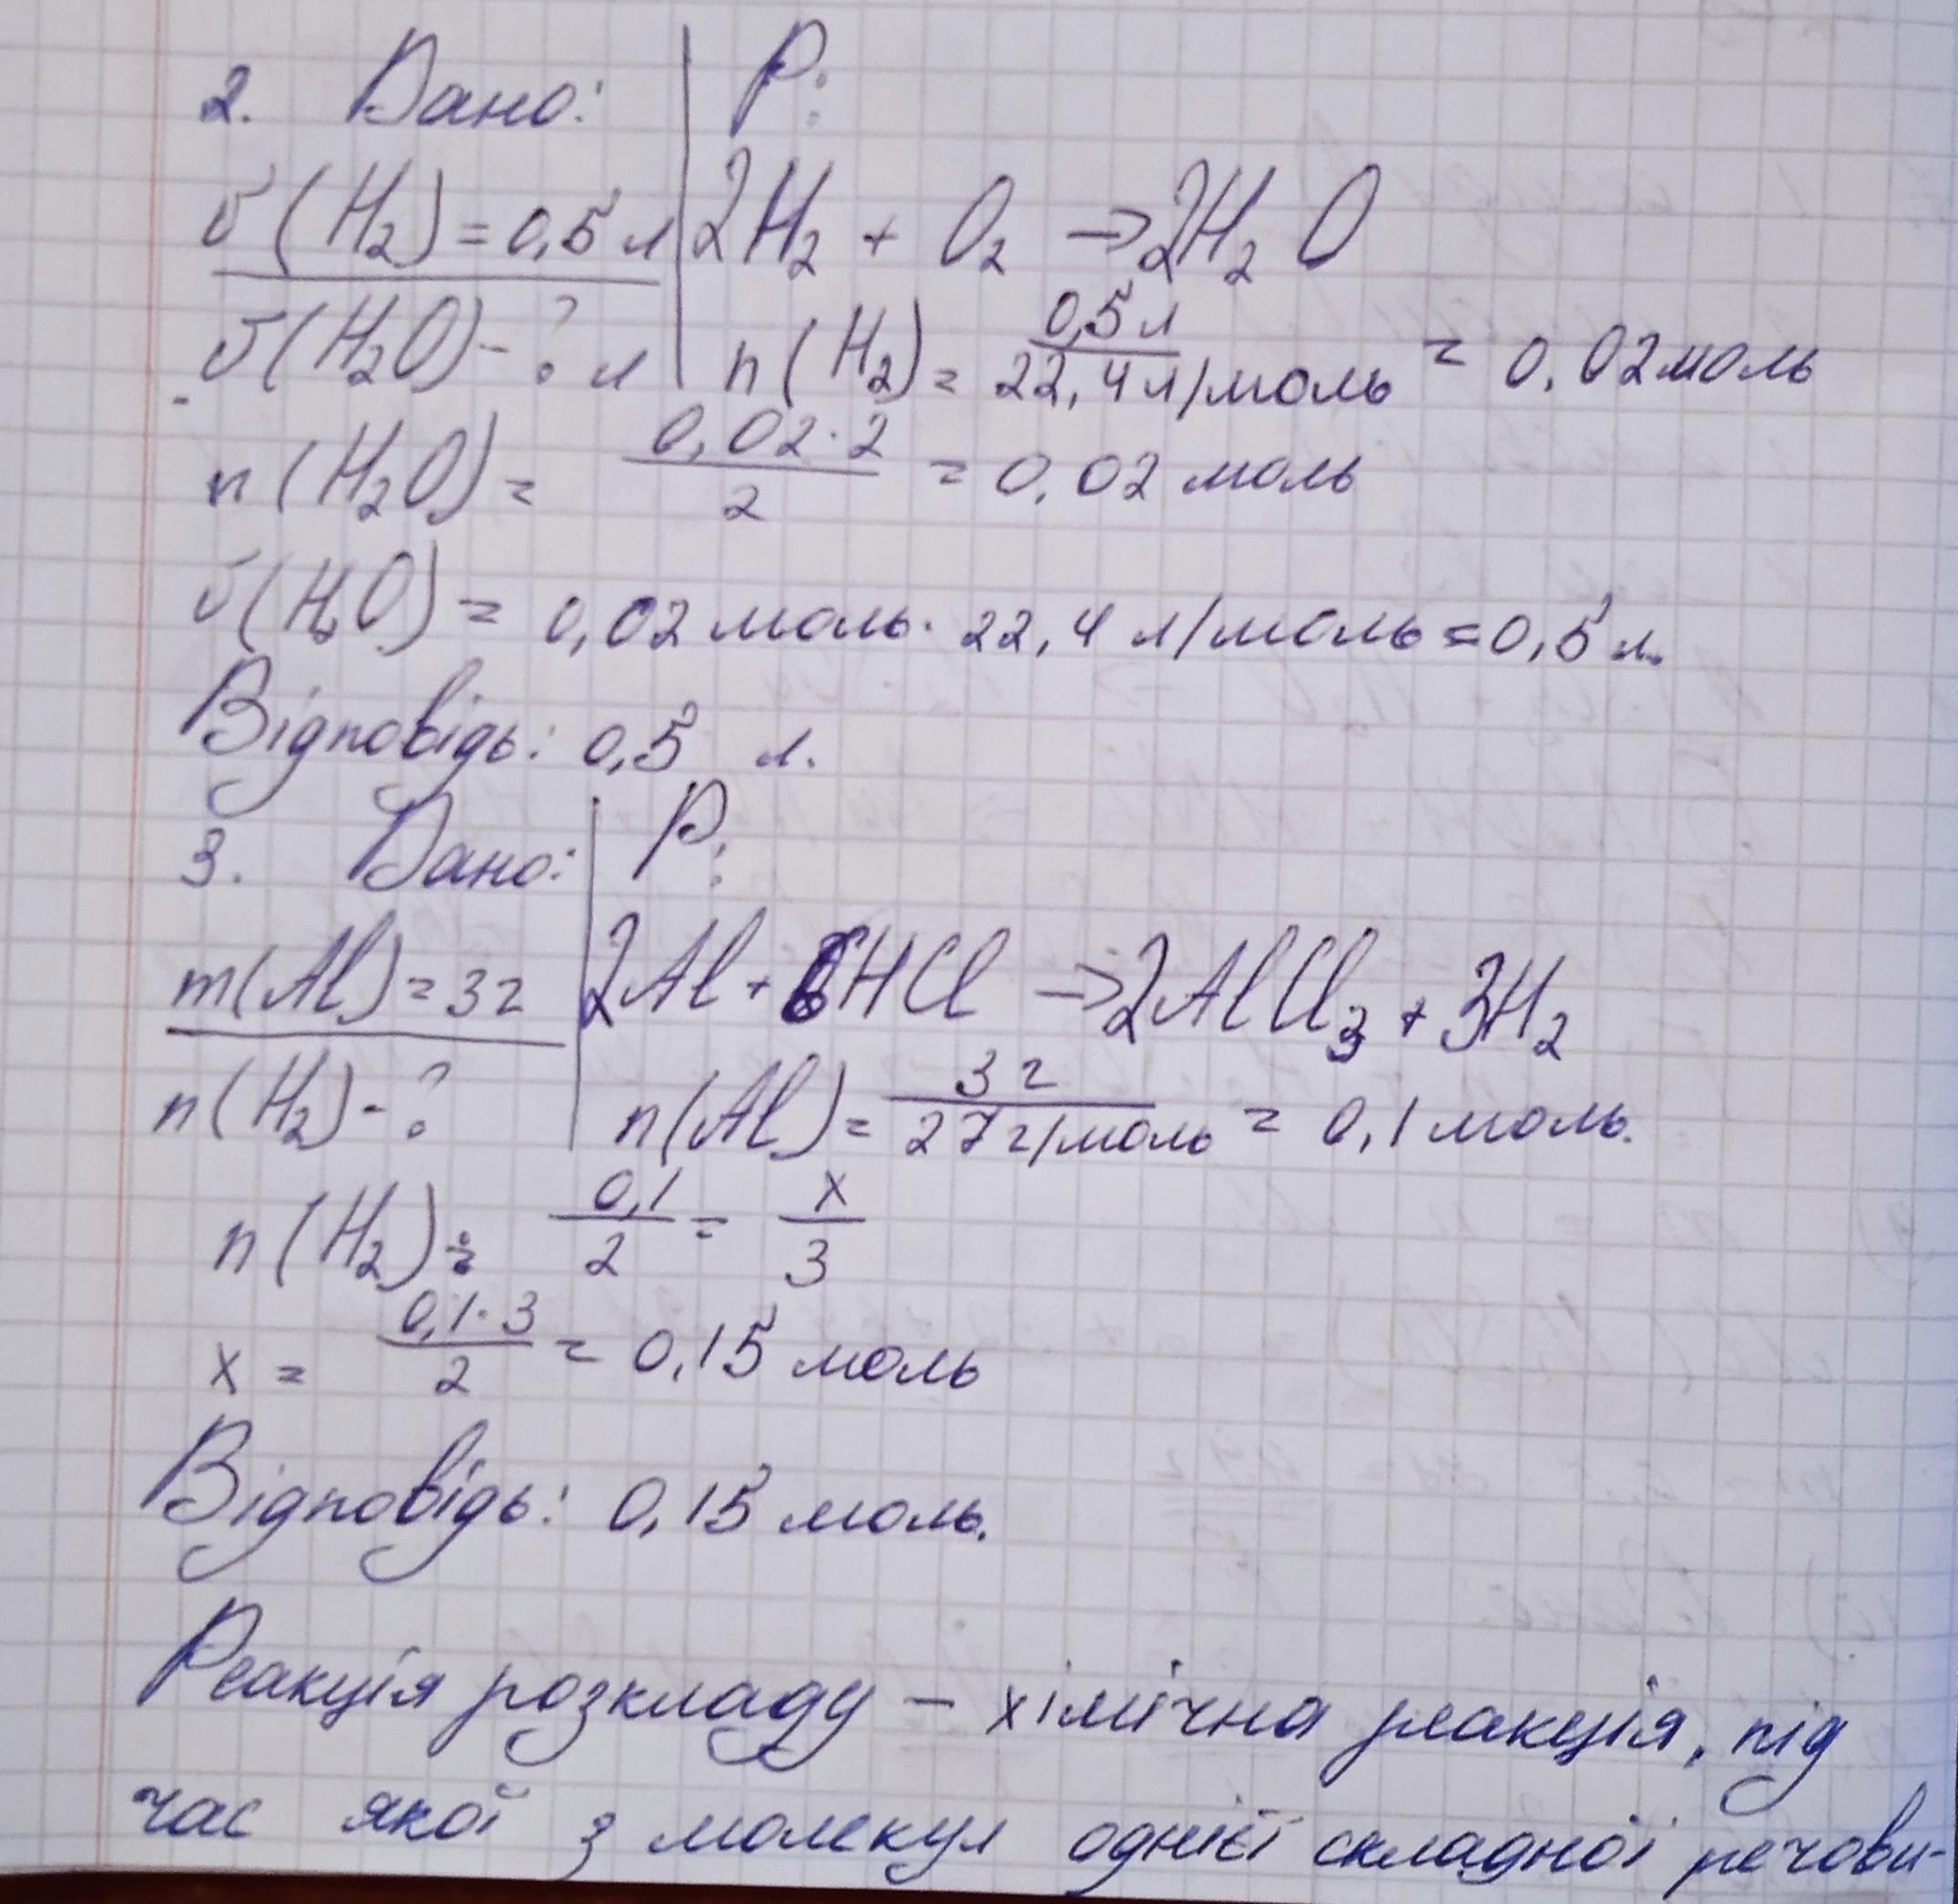 2. Дано: Р:
V(H₂) = 0,5 л 2H₂ + O₂ → 2H₂O
V(H₂O) - ? л n(H₂) = 0,5 л / 22,4 л/моль = 0,02 моль
n(H₂O) = 0,02 · 2 / 2 = 0,02 моль
V(H₂O) = 0,02 моль · 22,4 л/моль = 0,5 л.
Відповідь: 0,5 л.
3. Дано: Р:
m(Al) = 3г 2Al + 6HCl → 2AlCl₃ + 3H₂
n(H₂) - ? n(Al) = 3 г / 27 г/моль = 0,1 моль.
n(H₂) : 0,1 / 2 = x / 3
x = 0,1 · 3 / 2 = 0,15 моль
Відповідь: 0,15 моль.
Реакція розкладу – хімічна реакція, під
час якої з молекул однієї складної речови-